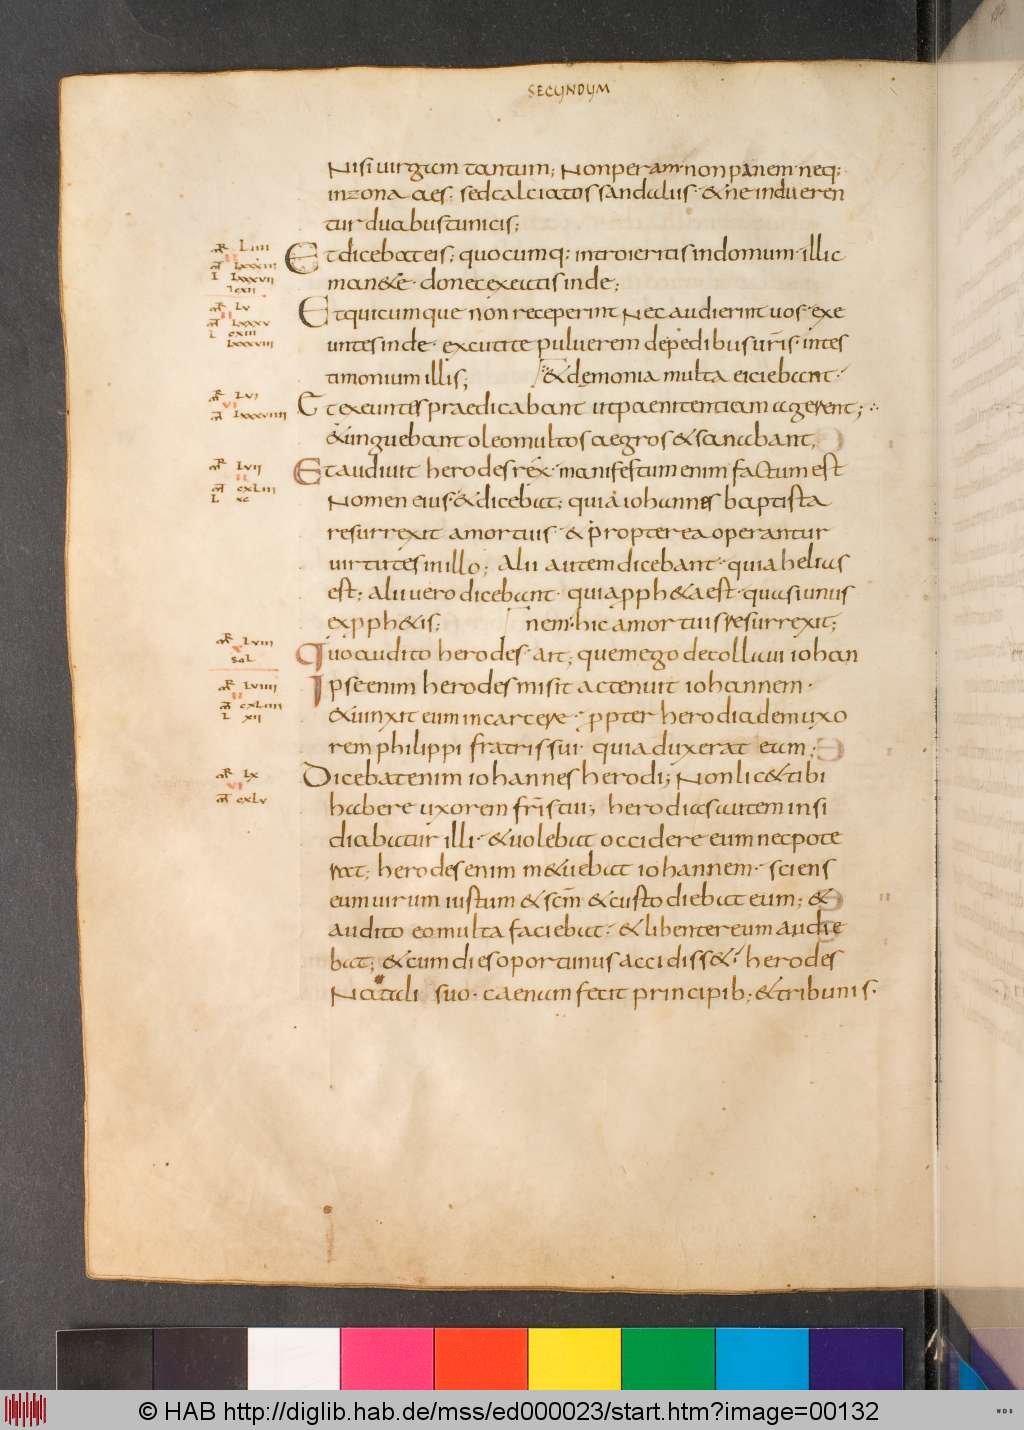 SECUNDUM
Nisi uirgam tantum; Non peram· non panem· neq:
in zona aes; sed calciatos sandaliis· & ne indueren
tur duabus tunicis;
mr̄ Liiii
Et dicebat eis; quocumq: introieritis in domum· illic
mt̄ lxxxiii
L lxxxvii
man&e· donec exeatis inde;
mr̄ Lv
Et quicumque non receperint Nec audierint uos· exe
mt̄ lxxxv
L cxiii
untes inde· excutite puluerem de pedibus uris̄· in tes
lxxxviii
timonium illis;
& demonia multa eiciebant·
mr̄ Lvi
vi
Et exeuntes praedicabant ut paenitentiam agerent;
mt̄ lxxxviiii
& unguebant oleo multos aegros & sanabant;
mr̄ Lvii
Et audiuit herodes rex· manifestum enim factum est
mt̄ cxliii
L xc
Nomen eius· & dicebat; quia iohannes baptista
resurrexit a mortuis· & propterea operantur
uirtutes in illo; Alii autem dicebant· quia helias
est; alii uero dicebant· quia pph&a est· quasi unus
ex pph&is;
nem· hic a mortuis resurrexit;
mr̄ Lviii
Quo audito herodes· ait; quem ego decollaui iohan
sol
mr̄ Lviiii
Ipse enim herodes misit ac tenuit iohannem·
mt̄ cxliiii
L xii
& uinxit eum in carcere· ppter herodiadem uxo
rem philippi fratris sui· quia duxerat eum;
mr̄ Lx
vi
Dicebat enim iohannes herodi; Non lic& tibi
mt̄ cxlv
habere uxorem fr̄is tui; herodias autem insi
diabatur illi· & uolebat occidere eum nec pote
rat; herodes enim m&uebat iohannem· sciens
eum uirum iustum & scm̄ & custodiebat eum; &
audito eo multa faciebat· & libenter eum audie
bat; & cum dies oportunus accidiss&· herodes
Natali suo· caenam fecit principib; & tribunis·
© HAB http://diglib.hab.de/mss/ed000023/start.htm?image=00132